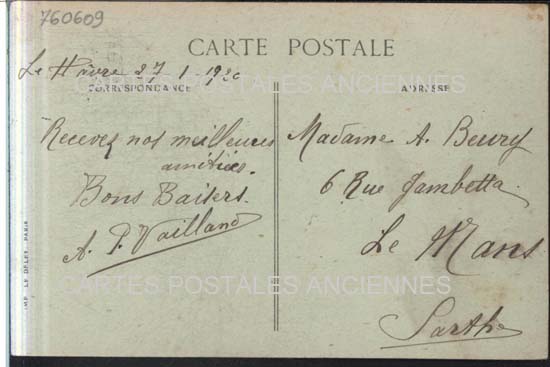 760609
CARTE POSTALE
Le Hâvre 27 1-1920
CARTES POSTALES ANCIENNES
CORRESPONDANCE
ADRESSE
Recevez nos meilleures
amitiés.
Bons Baisers.
A. P. Vailland
Madame A. Beury
6 Rue Gambetta
Le Mans
Sarthe
CARTES POSTALES ANCIENNES
IMP. LE DELEY, PARIS